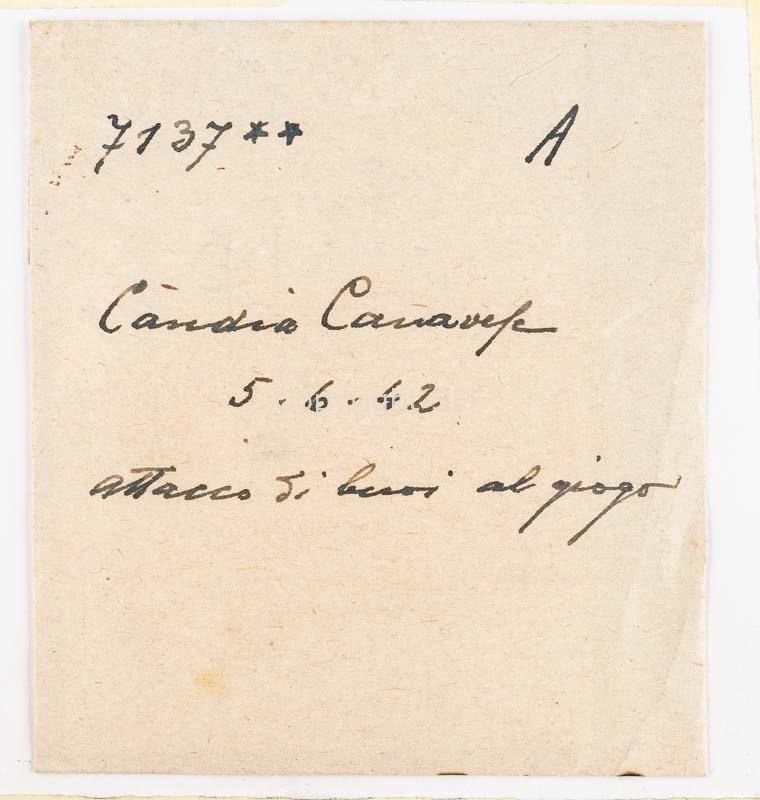 7137** A
Candia Canavese
5.6.42
attacco di buoi al giogo